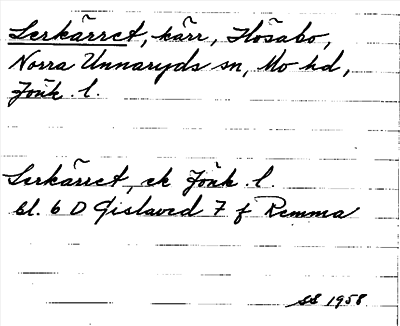 Lerkärret, kärr, Hösabo,
Norra Unnaryds sn, Mo hd,
Jönk. l.
Lerkärret, ek Jönk. l.
bl. 6 D Gislaved 7 f Remma
1958